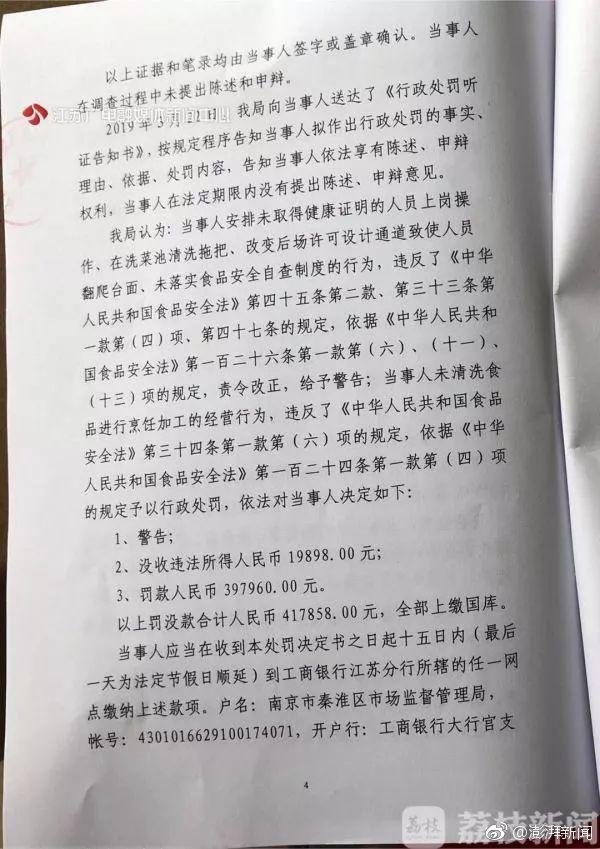 以上证据和笔录均由当事人签字或盖章确认。当事人
在调查过程中未提出陈述和申辩。
江苏广电融媒体新闻中心
2019年3月12日，我局向当事人送达了《行政处罚听
证告知书》，按规定程序告知当事人拟作出行政处罚的事实、
理由、依据、处罚内容，告知当事人依法享有陈述、申辩
权利，当事人在法定期限内没有提出陈述、申辩意见。
我局认为：当事人安排未取得健康证明的人员上岗操
作、在洗菜池清洗拖把、改变后场许可设计通道致使人员
翻爬台面、未落实食品安全自查制度的行为，违反了《中华
人民共和国食品安全法》第四十五条第二款、第三十三条第
一款第（四）项、第四十七条的规定，依据《中华人民共和
国食品安全法》第一百二十六条第一款第（六）、（十一）、
（十三）项的规定，责令改正，给予警告；当事人未清洗食
品进行烹饪加工的经营行为，违反了《中华人民共和国食品
安全法》第三十四条第一款第（六）项的规定，依据《中华
人民共和国食品安全法》第一百二十四条第一款第（四）项
的规定予以行政处罚，依法对当事人决定如下：
1、警告；
2、没收违法所得人民币19898.00元；
3、罚款人民币397960.00元。
以上罚没款合计人民币417858.00元，全部上缴国库。
当事人应当在收到本处罚决定书之日起十五日内（最后
一天为法定节假日顺延）到工商银行江苏分行所辖的任一网
点缴纳上述款项。户名：南京市秦淮区市场监督管理局，
帐号：4301016629100174071，开户行：工商银行大行官支
4
荔枝 荔枝新闻
@澎湃新闻